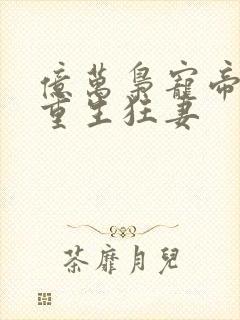 億萬梟寵帝
重生狂妻
荼靡月兒